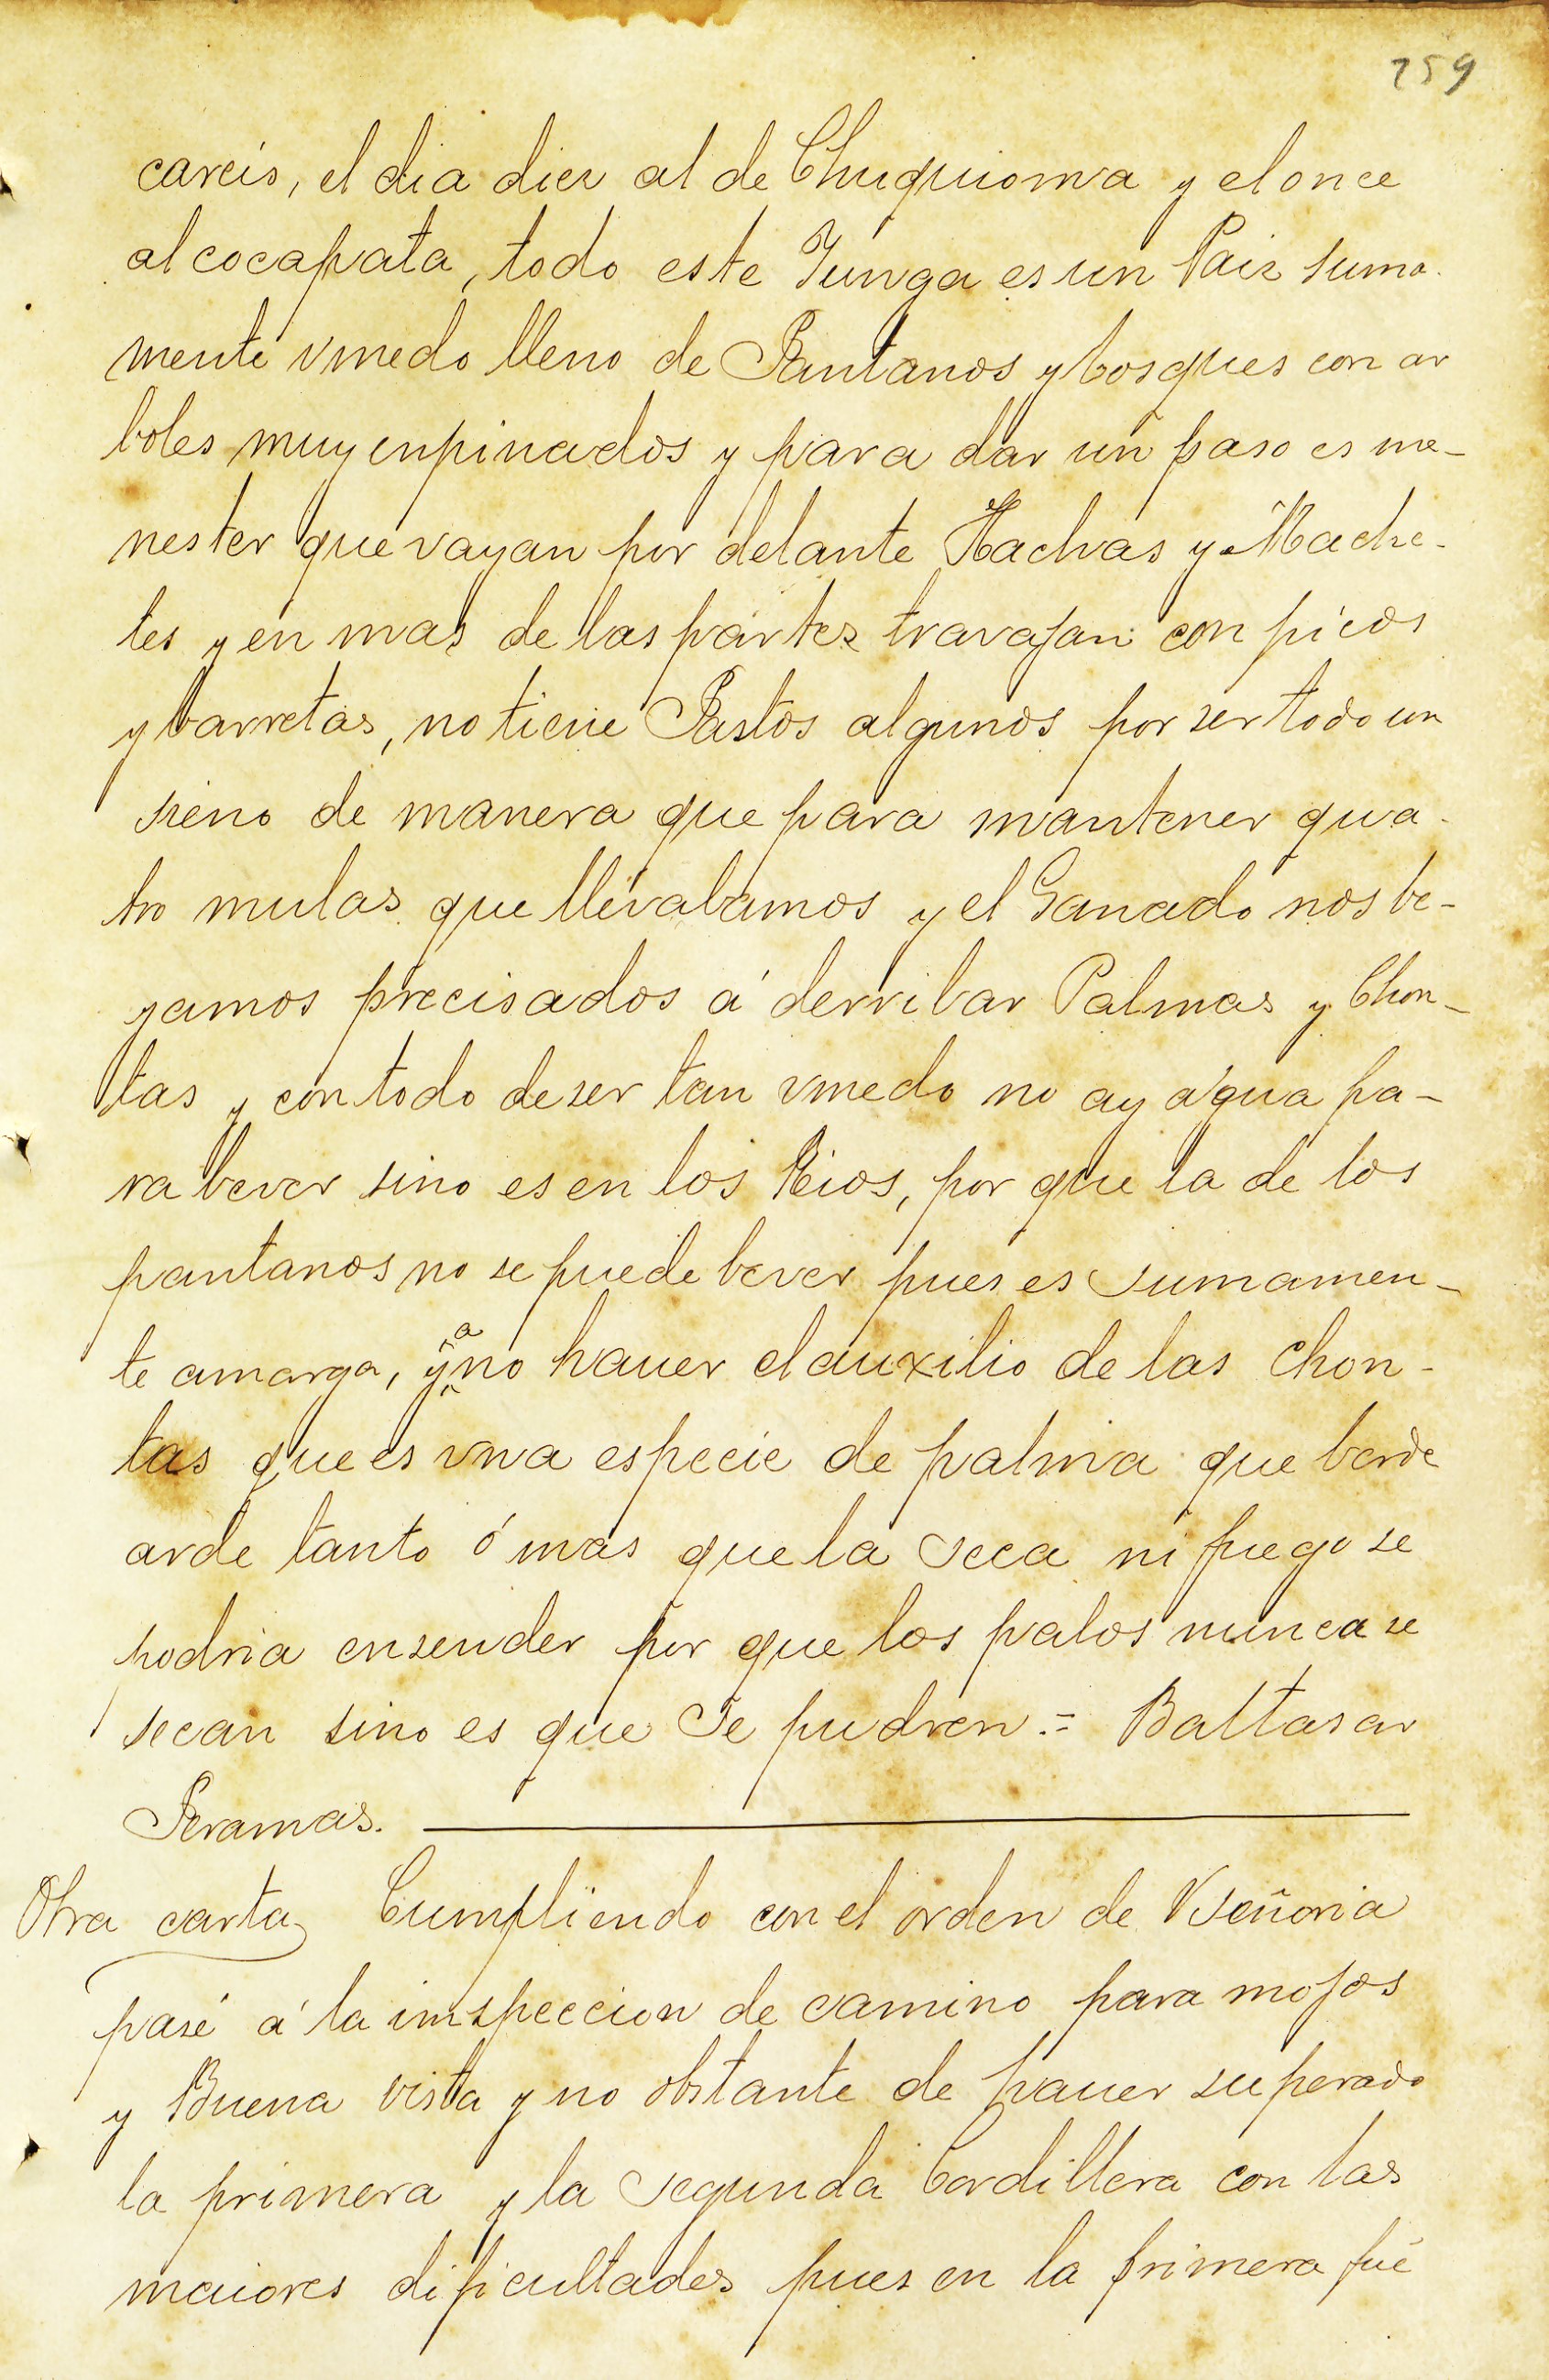 259
careis, el dia diez al de Chuquioma y el once
al cocapata, todo este Yunga es un Paiz suma-
mente vmedo lleno de Pantanos y bosques con ar
boles muy enpinados y para dar un paso es me-
nester que vayan por delante Hachas y Mache-
tes y en mas de las partes travajan con picos
y barretas, no tiene Pastos algunos por ser todo un
sieno de manera que para mantener qua-
tro mulas que llevabamos y el Ganado nos be-
yamos precisados á derribar Palmas y Chon-
tas y con todo de ser tan vmedo no ay agua pa-
ra bever sino es en los Rios, por que la de los
pantanos no se puede bever pues es sumamen-
te amarga, y a no hauer el auxilio de las chon-
tas que es vna especie de palma que berde
arde tanto ó mas que la seca ni fuego se
podria ensender por que los palos nunca se
secan sino es que se pudren.= Baltasar
Peramas.
Otra carta Cumpliendo con el orden de Vseñoria
pasé á la inspeccion de camino para mojos
y Buena vista y no obstante de hauer superado
la primera y la segunda Cordillera con las
maiores dificultades pues en la primera fué